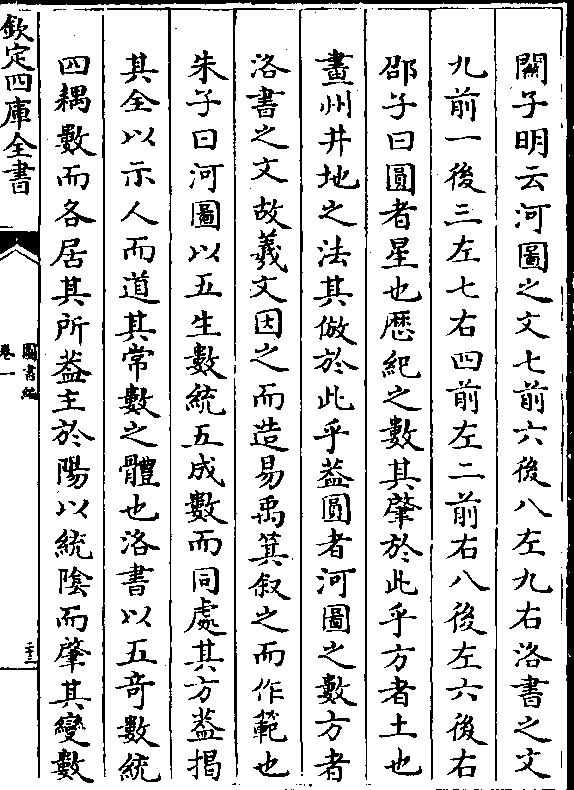 關子明云河圖之文七前六後八左九右洛書之文
九前一後三左七右四前左二前右八後左六後右
邵子曰圓者星也厯紀之數其肇於此乎方者土也
畫州井地之法其倣於此乎葢圓者河圖之數方者
洛書之文故羲文因之而造易禹箕叙之而作範也
朱子曰河圖以五生數統五成數而同處其方葢揭
其全以示人而道其常數之體也洛書以五奇數統
四耦數而各居其所葢主於陽以統隂而肇其變數
欽定四庫全書
圖書編
卷一
二十三